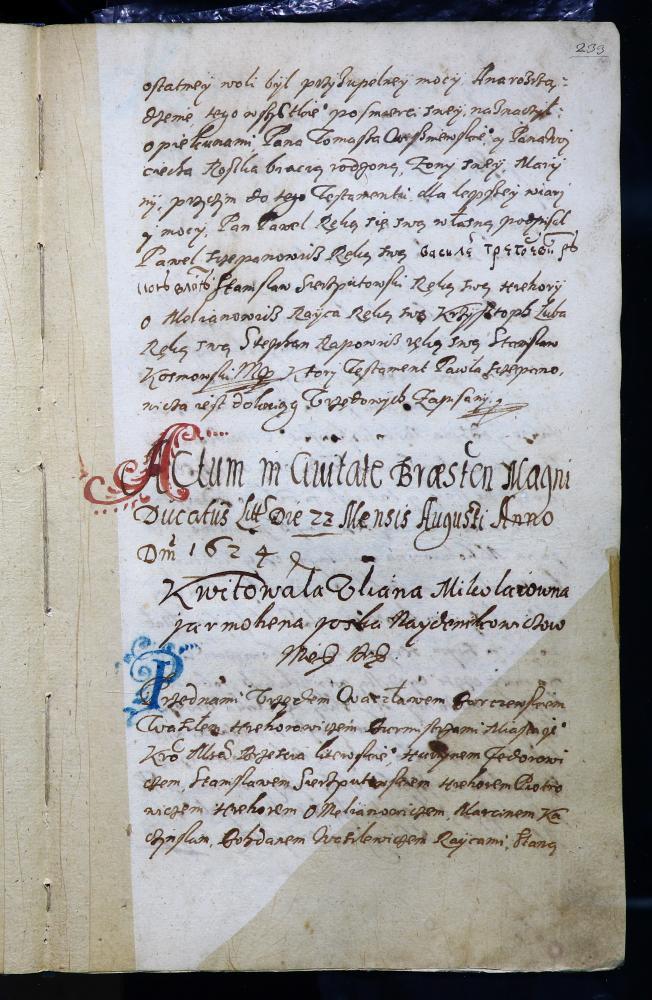 233
ostatney woli był przy zupełney mocy
tego wszystkie° po smierci swey, naznaczył
opiekunami Pana Tomasza y Pana Woy
ciecha Kostka bracią rodzoną, Zony swey Mary
ny, przyczym do tego Testamentu dla lepszey wiary
y mocy, Pan Pawel Ręką się swą własną podpisał
Pawel Szczepanowicz Ręką swą василе
Stanislaw Sierzputowski Ręką swą Hrehory
O Melianowicz Rayca Ręką swą Krzysztoph Zuba
Ręką swą Stephan Kapowicz ręką swą Stanislaw
Kosmowski Mp Ktory Testament Pawła Szczepano,
wicza iest do Urzędowych Zapisany.
Actum in Ciuitate Bræsten Magni
Ducatus Litt Die 22 Mensis Augusti Anno
Dni 1624
Kwitowala Uliana Mikolaiowna
Jarmoliena Naydenikowiczow
Przed nami Urzędem Wacławem Borczewskiem
Wasilem Hrehorowiczem Burmistrzami Miasta Je°
Kro Msci Brzescia litewskie° Fedorowi
czem, Stanisławem Sierzputowskiem Hrehorem Piotro
wiczem Hrehorem O Melianowiczem, Marcinem Ka
Bohdanem Wasilewiczem Raycami, Staną